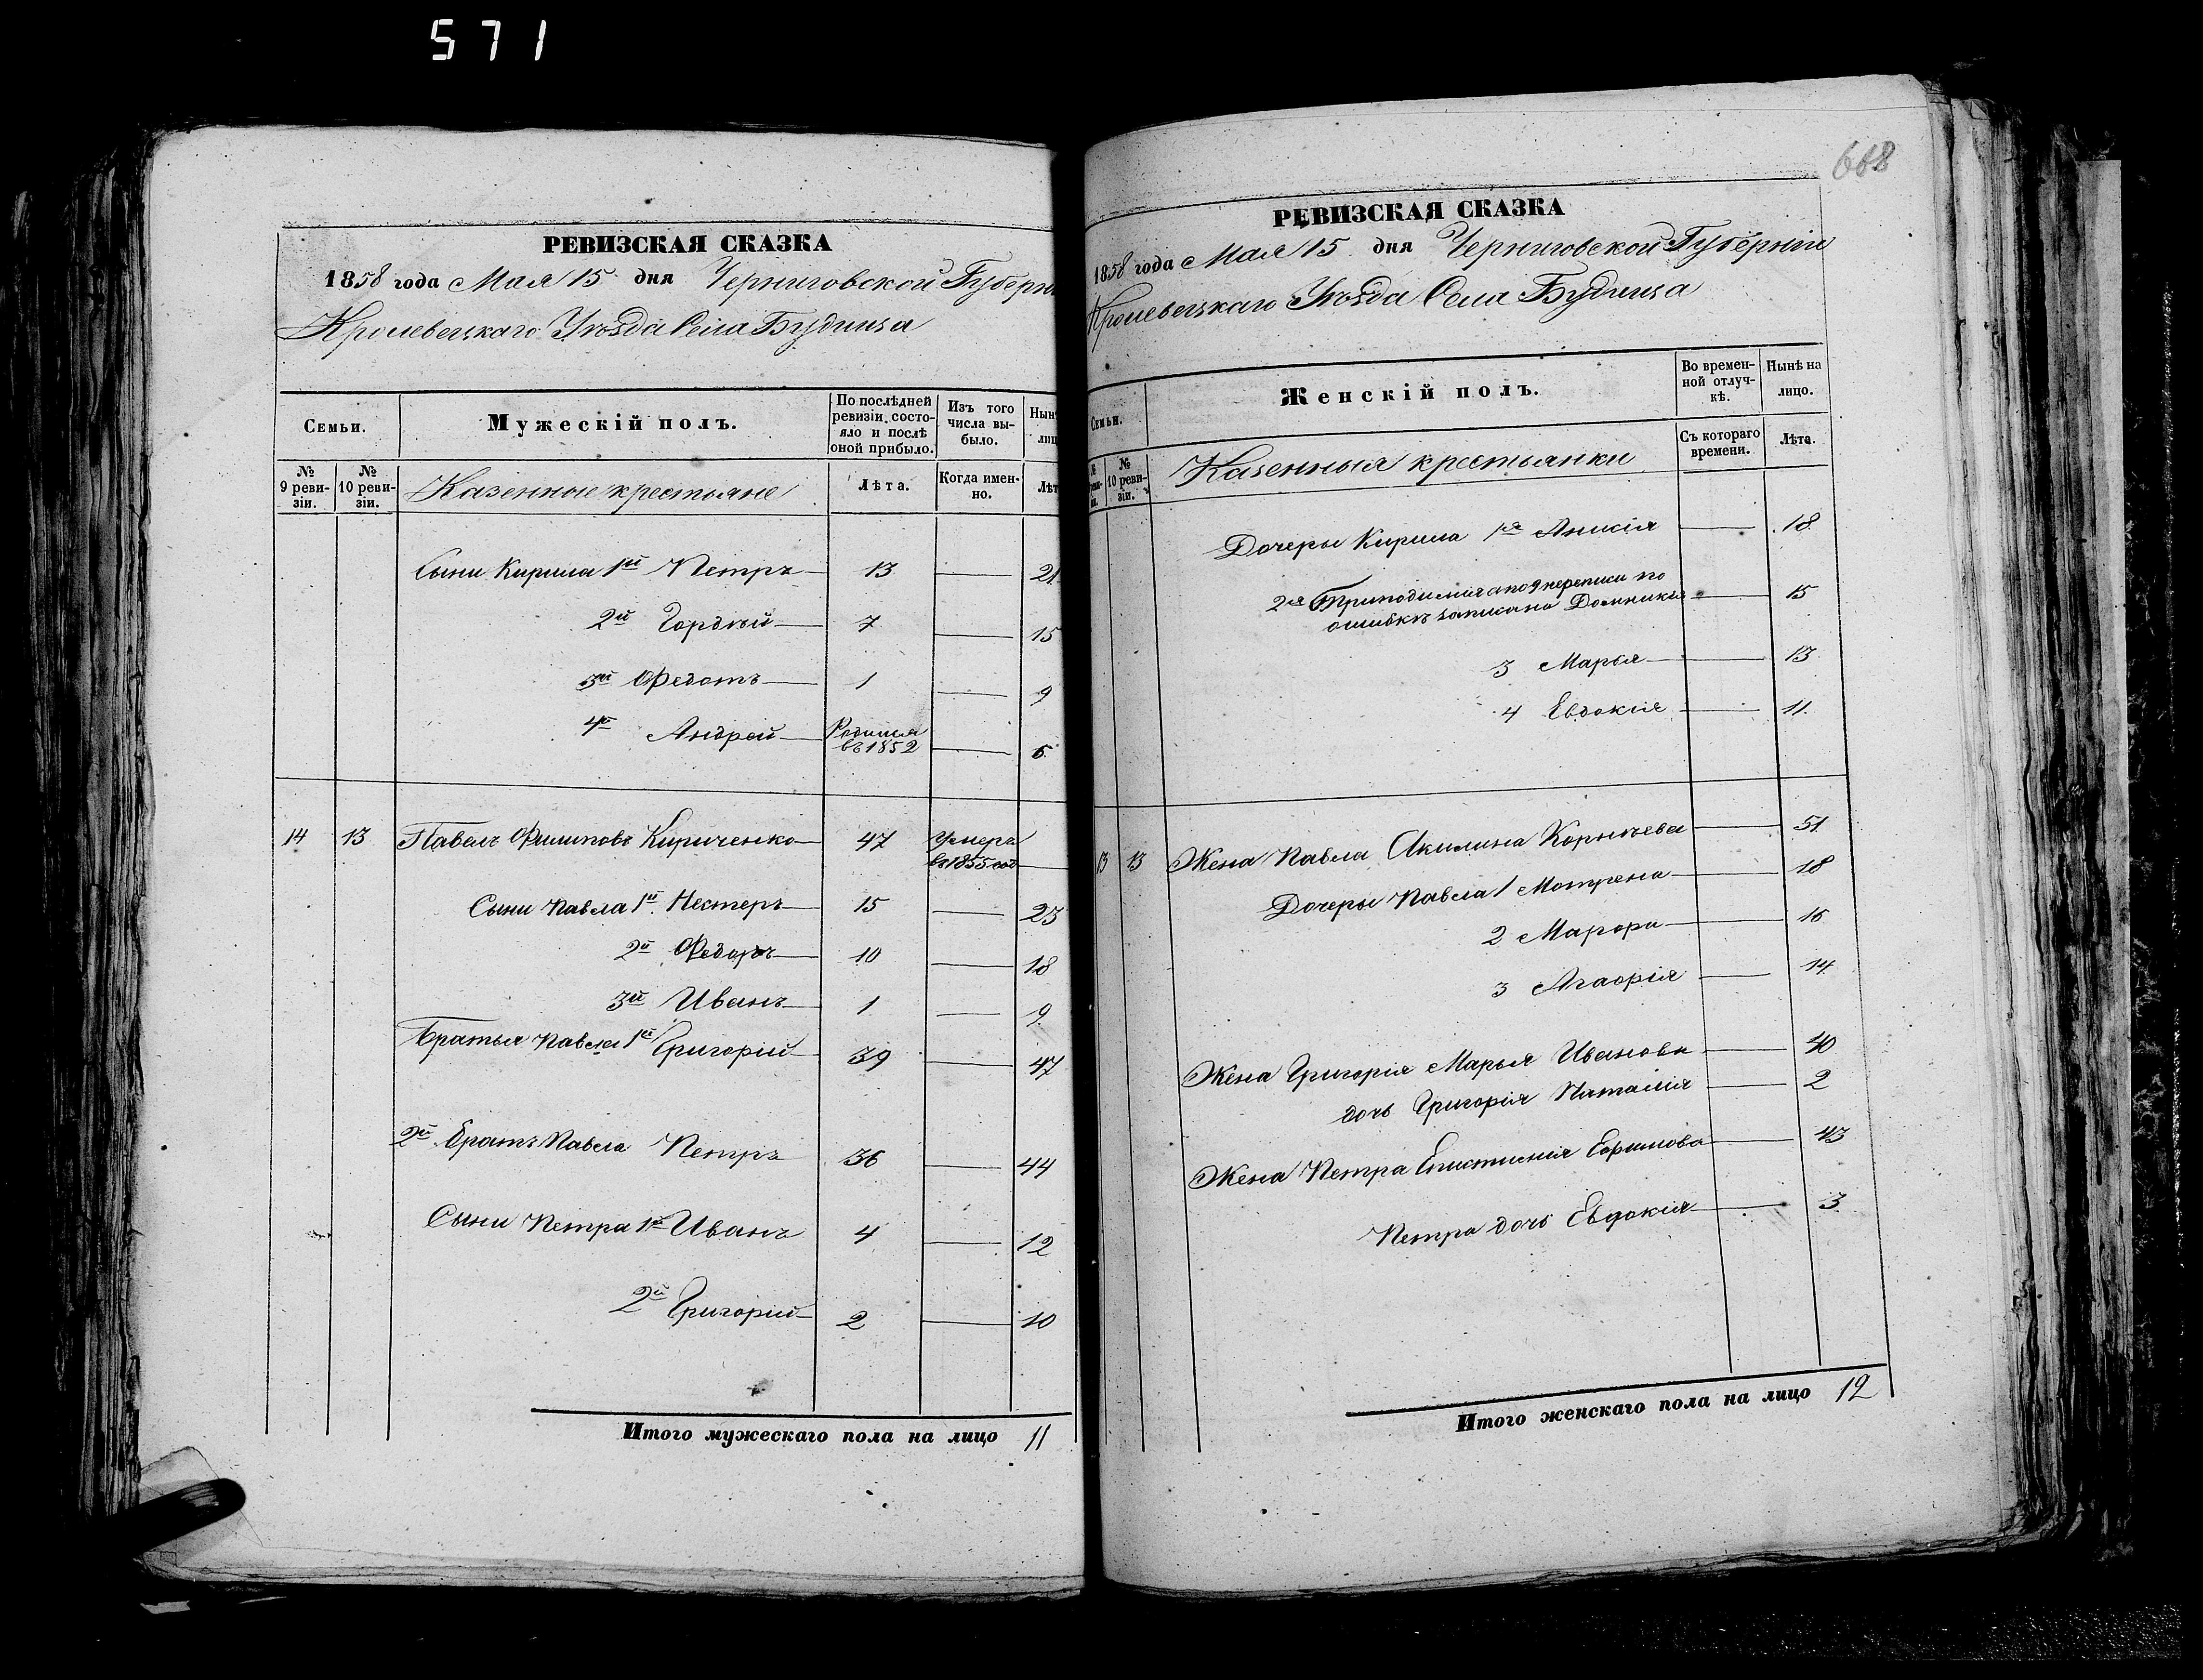 571
668
РЕВИЗСКАЯ СКАЗКА
1858 года Мая 15 дня Черниговской Губерн
Кролевецкаго Уѣзда Села Будища
Семьи.
Мужескій полъ.
По послѣдней ревизіи состояло и послѣ оной прибыло.
Изъ того числа выбыло.
Нын лиц
№ 9 ревизіи.
№ 10 ревизіи.
Казенные крестьяне
Лѣта.
Когда именно.
Лѣт
Сыни Кирила 1й Петръ 13 21
2й Гордѣй 7 15
3й Федотъ 1 9
4й Андрей Родился въ 1852 6
14 13 Павелъ Филиповъ Кириченко 47 Умеръ въ 1855 год
Сыни Павла 1й Нестеръ 15 23
2й Федоръ 10 18
3й Иванъ 1 9
Братья Павла 1й Григорій 39 47
2й Братъ Павла Петръ 36 44
Сыни Петра 1й Иванъ 4 12
2й Григорій 2 10
Итого мужескаго пола на лицо 11
РЕВИЗСКАЯ СКАЗКА
1858 года Мая 15 дня Черниговской Губерніи
Кролевецкаго Уѣзда Села Будища
Семьи.
Женскій полъ.
Во временной отлучкѣ.
Нынѣ на лицо.
№ 10 ревизіи.
Казенныя крестьянки
Съ котораго времени.
Лѣта.
Дочеры Кирила 1я 18
2я а по 9 переписи по 15
ошибкѣ записана Домникія
3 Марья 13
4 Евдокія 11
13 13 Жена Павла Акилина Корнѣева 51
Дочеры Павла 1 Мотрена 18
2 Марфа 16
3 Агафія 14
Жена Григорія Марья Иванова 40
дочь Григорія Наталія 2
Жена Петра Епистимія Ефимова 43
Петра дочь Евдокія 3
Итого женскаго пола на лицо 12